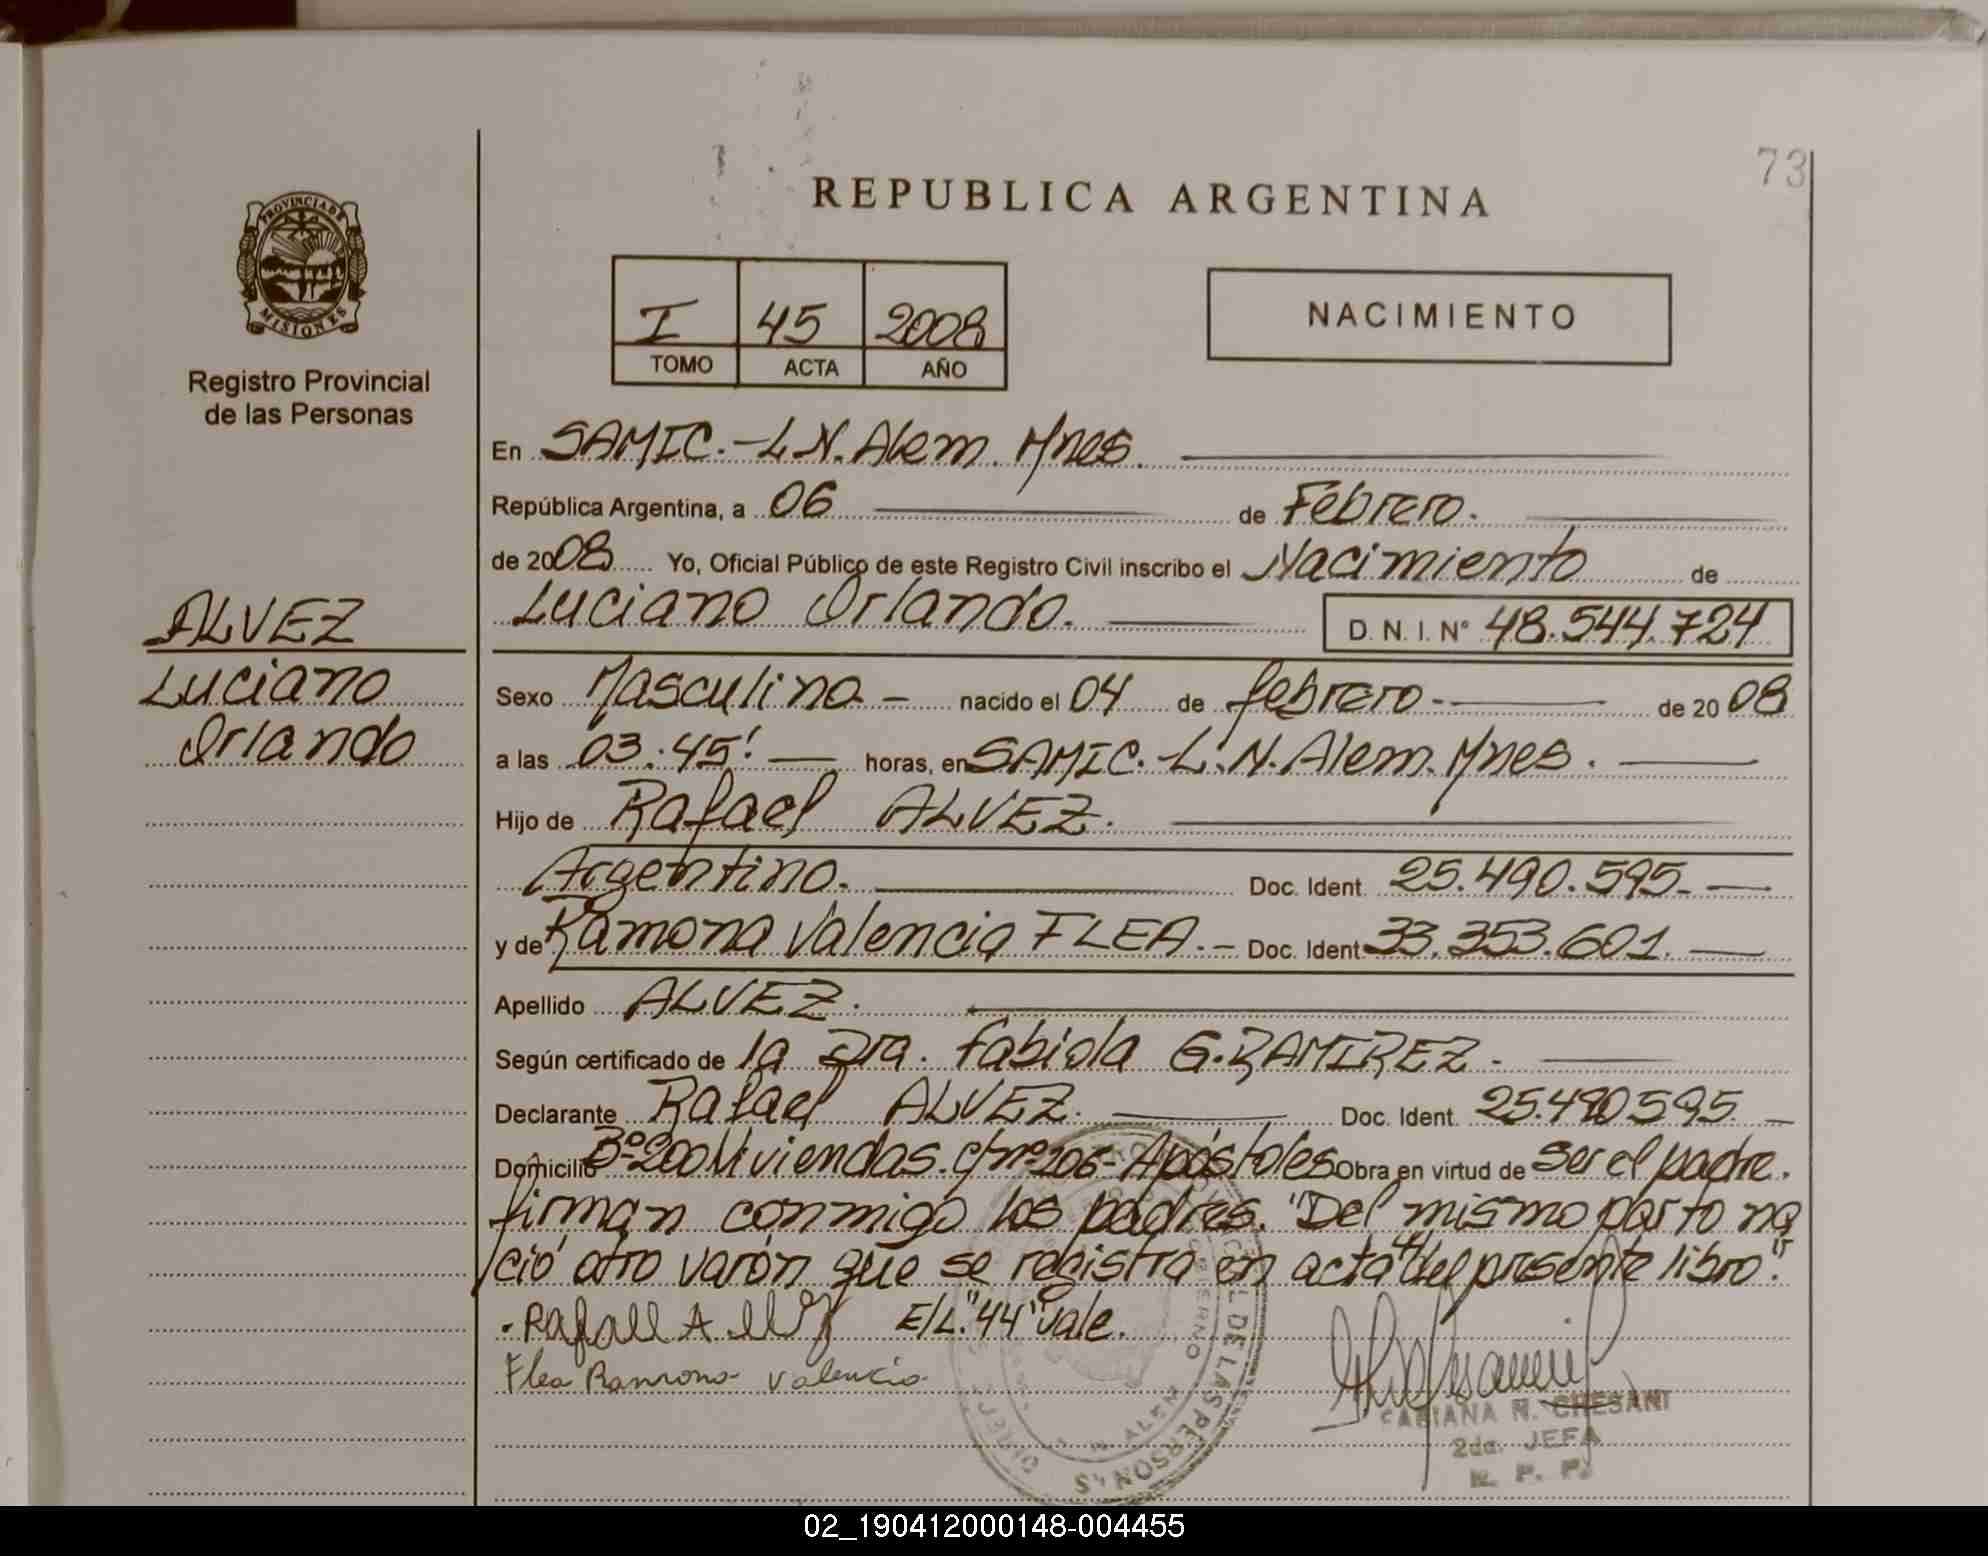 73
REPUBLICA ARGENTINA
PROVINCIA DE
MISIONES
Registro Provincial
de las Personas
I 45 2008
TOMO ACTA AÑO
NACIMIENTO
En SAMIC.-L N. Alem. Mnes.
República Argentina, a 06 de Febrero.
de 2008 Yo, Oficial Público de este Registro Civil inscribo el Nacimiento de
Luciano Orlando. D. N. I. N° 48.544.724
ALVEZ
Luciano
Orlando
Sexo Masculino - nacido el 04 de febrero - de 2008
a las 03:45' horas, en SAMIC.-L.N. Alem. Mnes.
Hijo de Rafael ALVEZ.
Argentino. Doc. Ident. 25.490.595.
y de Ramona Valencia FLEA.- Doc. Ident. 33.353.601.
Apellido ALVEZ.
Según certificado de la Dra. Fabiola G. RAMIREZ-
Declarante Rafael ALVEZ. Doc. Ident. 25.490595.
Domicilio B° 200 Viviendas. C/n° 206- Apóstoles Obra en virtud de ser el padre.
firman conmigo los padres. "Del mismo parto na
ció otro varón que se registra en acta 44 del presente libro."
E/L. "44" vale.
Flea Ramona Valencia
FABIANA N. CHESANI
2da. JEFA
R. P. P.
DE LAS PERSONAS
N. ALEM
02_190412000148-004455